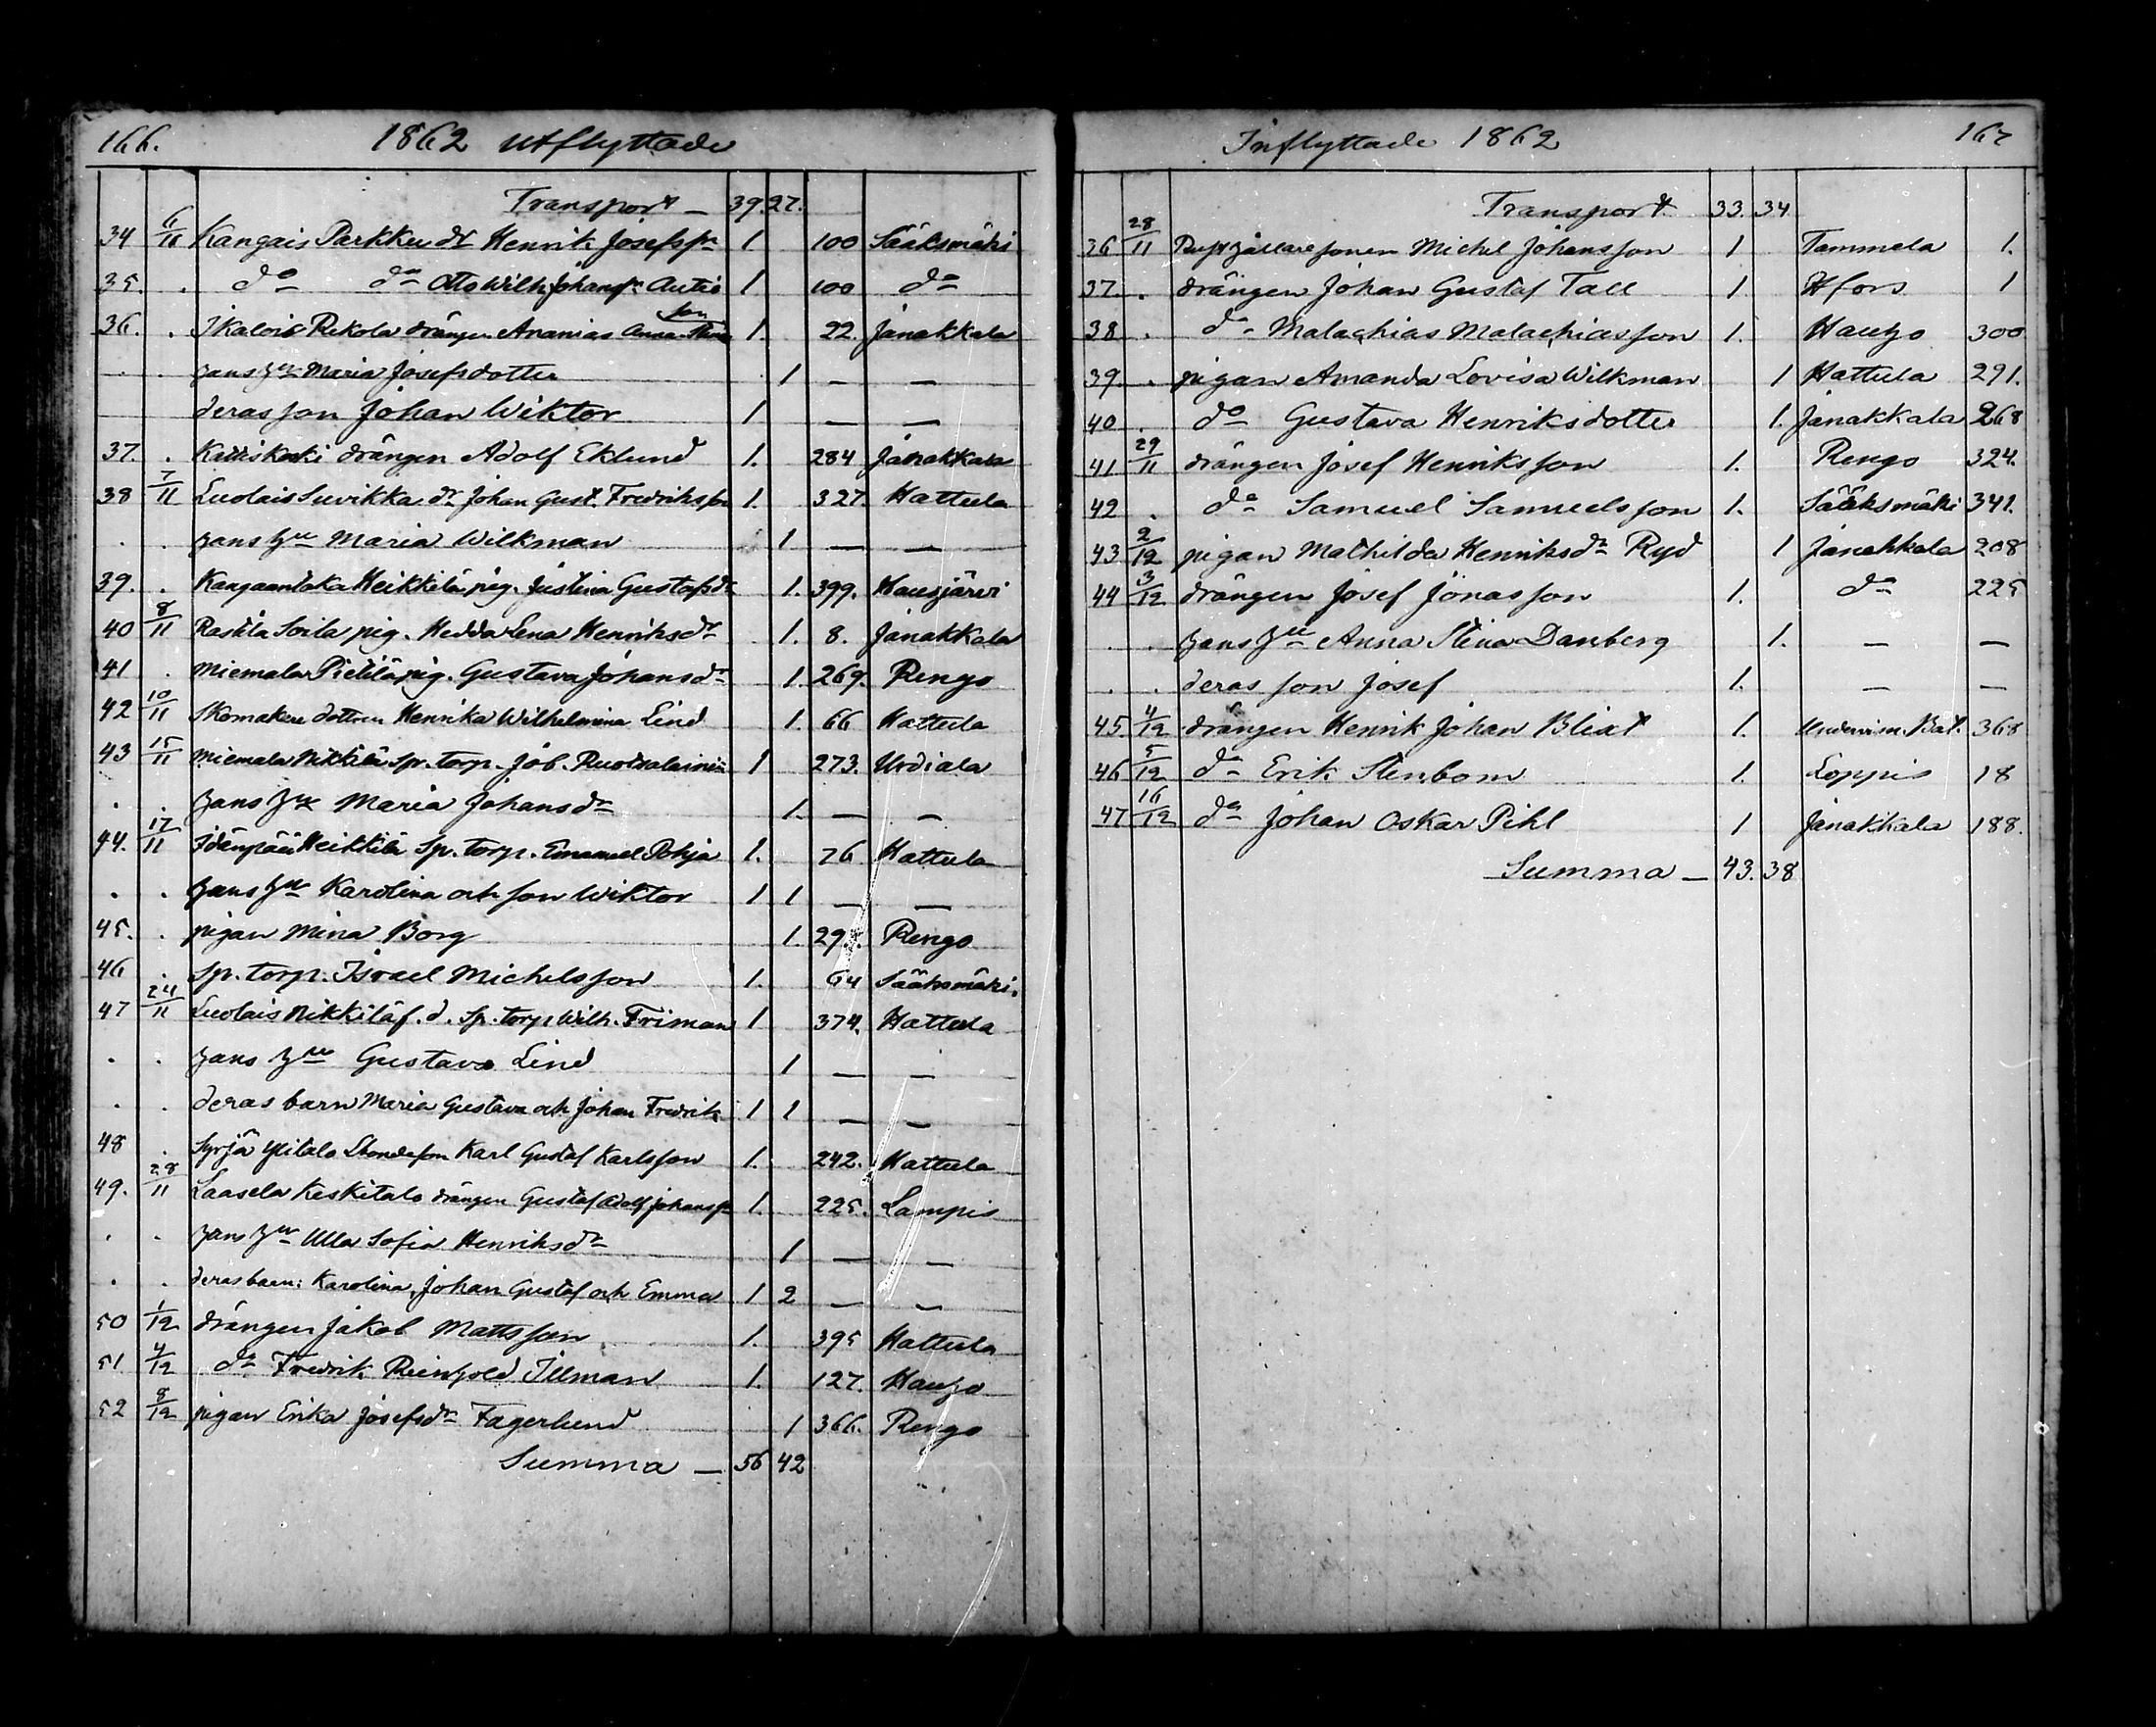 166. 1862 Utflyttade
Transport — 39. 27.
34 6/11 Kangais Parkku dr Henrik Josefss:n 1 100 Sääksmäki
35. . do do Otto Wilh. Johanss:n Autio 1 100 do
36. . Ikalois Rekola drängen Ananias Anna Stina son 1. 22. Janakkala
. . hans hu Maria Josefsdotter 1 — —
deras son Johan Wiktor 1 — —
37. . drängen Adolf Eklund 1. 284 Janakkala
38 7/11 Luolais Suvikka dr. Johan Gust. Fredriksson 1. 327. Hattula
. . hans hu Maria Wilkman 1 — —
39. . Kangaantaka Heikkilä pig. Justina Gustafsdr 1. 399. Hausjärvi
40 8/11 Rastila Soila pig. Hedda Lena Henriksdr 1. 8. Janakkala
41 . Miemala Pietilä pig. Gustava Johansdr 1. 269. Rengo
42 10/11 Skomakare dottren Henrika Wilhelmina Lind 1. 66 Hattula
43 15/11 Miemala Nikkilä sp. torp. Job. Ruotsalainen 1 273. Urdiala
. . hans hu Maria Johansdr 1. — —
44. 17/11 Idänpää Heikkilä sp. torp. Emanuel Pohja 1. 76 Hattula
. . hans hu Karolina och son Wiktor 1 1 — —
45. . pigan Mina Borg 1. Rengo
46 . sp. torp. Israel Michelsson 1. 64 Sääksmäki.
47 24/11 Luolais Nikkilä f. d. sp. torp Wilh. Friman 1 374. Hattula
. . hans hu Gustava Lind 1 — —
. . deras barn Maria Gustava och Johan Fredrik 1 1 — —
48 . Syrjä Ylitalo bondeson Karl Gustaf Karlsson 1. 242. Hattula
49. 28/11 Laasela Keskitalo drängen Gustaf Adolf Johanss:n 1. 225. Lampis
. . hans hu Ulla Sofia Henriksdr 1 — —
. . deras barn: Karolina, Johan Gustaf och Emma 1 2 — —
50 1/12 drängen Jakob Mattsson 1. 395 Hattula
51 4/12 do Fredrik Reinhold Illman 1. 127. Hauho
52 8/12 pigan Erika Josefsdr Fagerlund 1 366. Rengo
Summa — 56 42
Inflyttade 1862 167
Transport 33. 34
36 28/11 sonen Michel Johansson 1 Tammela 1.
37. . drängen Johan Gustaf Tall 1 Hfors 1
38 . do Malachias Malachiasson 1. Hauho 300
39 . pigan Amanda Lovisa Wilkman 1 Hattula 291.
40 . do Gustava Henriksdotter 1. Janakkala 268
41 29/11 drängen Josef Henriksson 1. Rengo 324.
42 . do Samuel Samuelsson 1. Sääksmäki 341.
43 2/12 pigan Mathilda Henriksdr Ryd 1 Janakkala 208
44 3/12 drängen Josef Jonasson 1. do 225
. . hans hu Anna Stina Danberg 1. — —
. . deras son Josef 1. — —
45. 4/12 drängen Henrik Johan Blixt 1. Undervisn. Bat. 368
46 5/12 do Erik Stenbom 1. Loppis 18
47 16/12 do Johan Oskar Pihl 1 Janakkala 188.
Summa — 43. 38